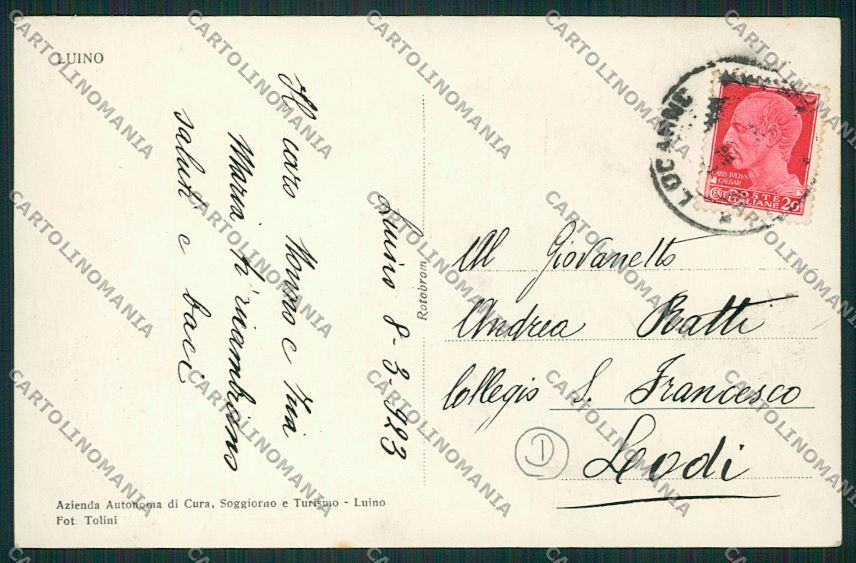 LUINO
Luino 8-3-923
Il caro Nonno e zia
Maria ti ricambiano
saluti e baci
Rotobrom
LOCARNO
CAIVS IVLIVS
CAESAR
POSTE
CENT ITALIANE 20
Al Giovanetto
Andrea Ratti
Collegio S. Francesco
Lodi
D
Azienda Autonoma di Cura, Soggiorno e Turismo - Luino
Fot. Tolini
CARTOLINOMANIA